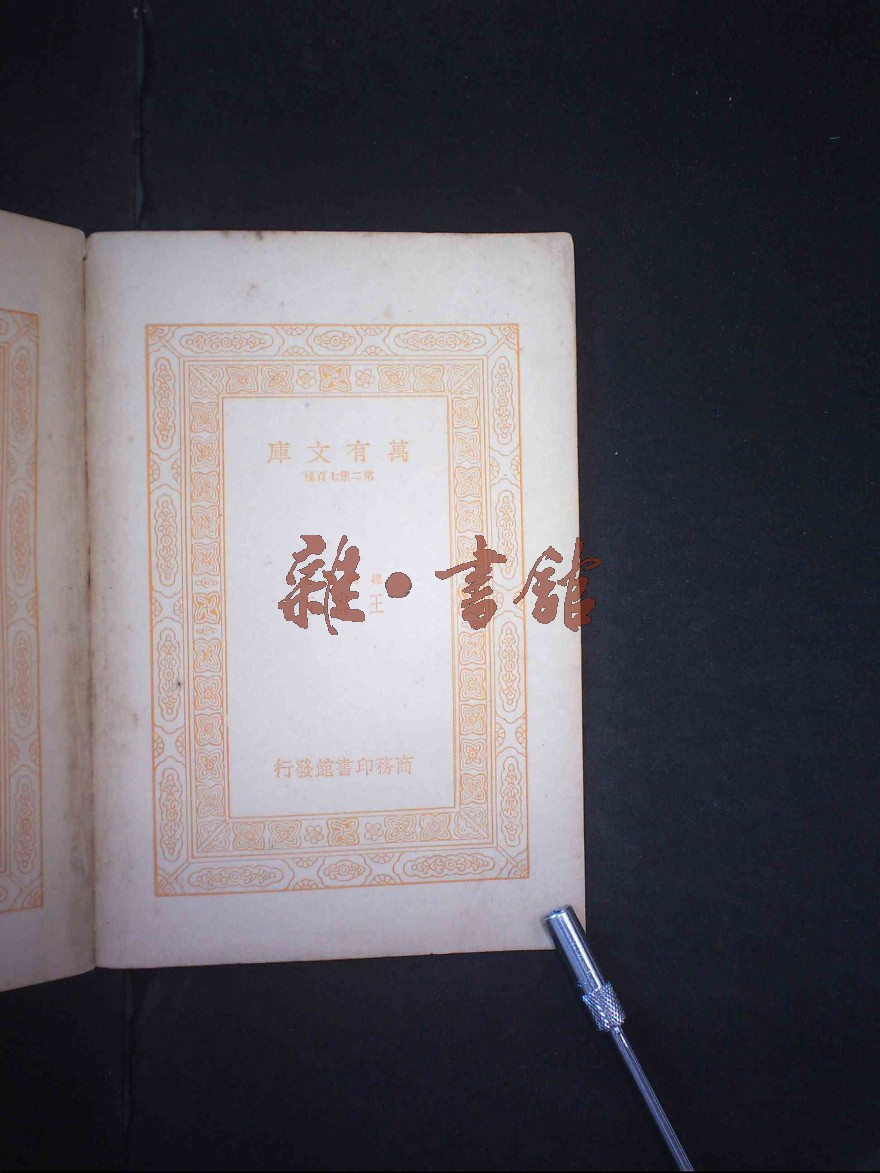 萬有文庫
第二集七百種
雜·書館
王
商務印書館發行